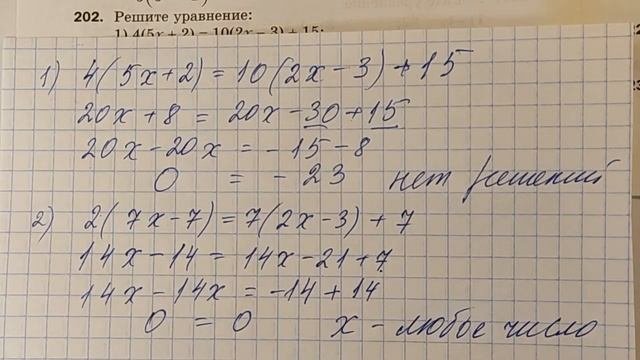 202. Решите уравнение:
1) 4(5x + 2) = 10(2x − 3) + 15;
1) 4(5x+2) = 10(2x−3)+15
20x+8 = 20x−30+15
20x−20x = −15−8
0 = −23 нет решений
2) 2(7x−7) = 7(2x−3)+7
14x−14 = 14x−21+7
14x−14x = −14+14
0 = 0 x − любое число